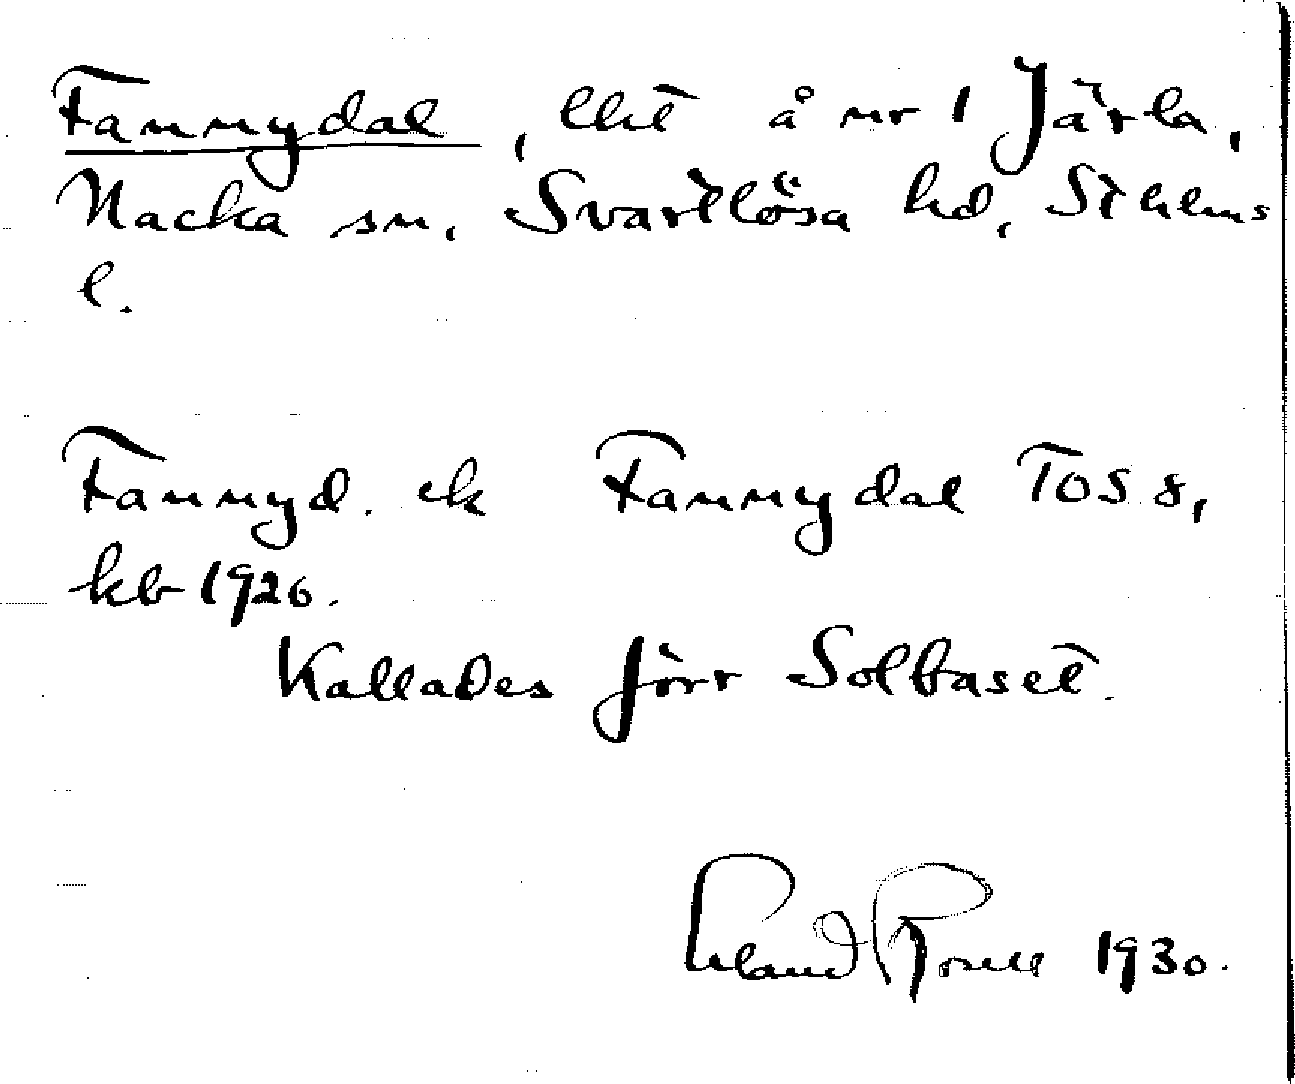 Fannydal, lht å nr 1 Järla,
Nacka sn, Svartlösa hd, Sthlms
l.
Fannyd. ek Fannydal TOS 8,
kb 1926.
Kallades förr Solbaset.
Erland Rosell 1930.